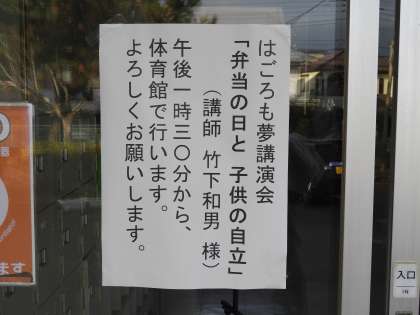 はごろも夢講演会
「弁当の日と 子供の自立」
(講師 竹下和男 様)
午後一時三〇分から、
体育館で行います。
よろしくお願いします。
入口
ます